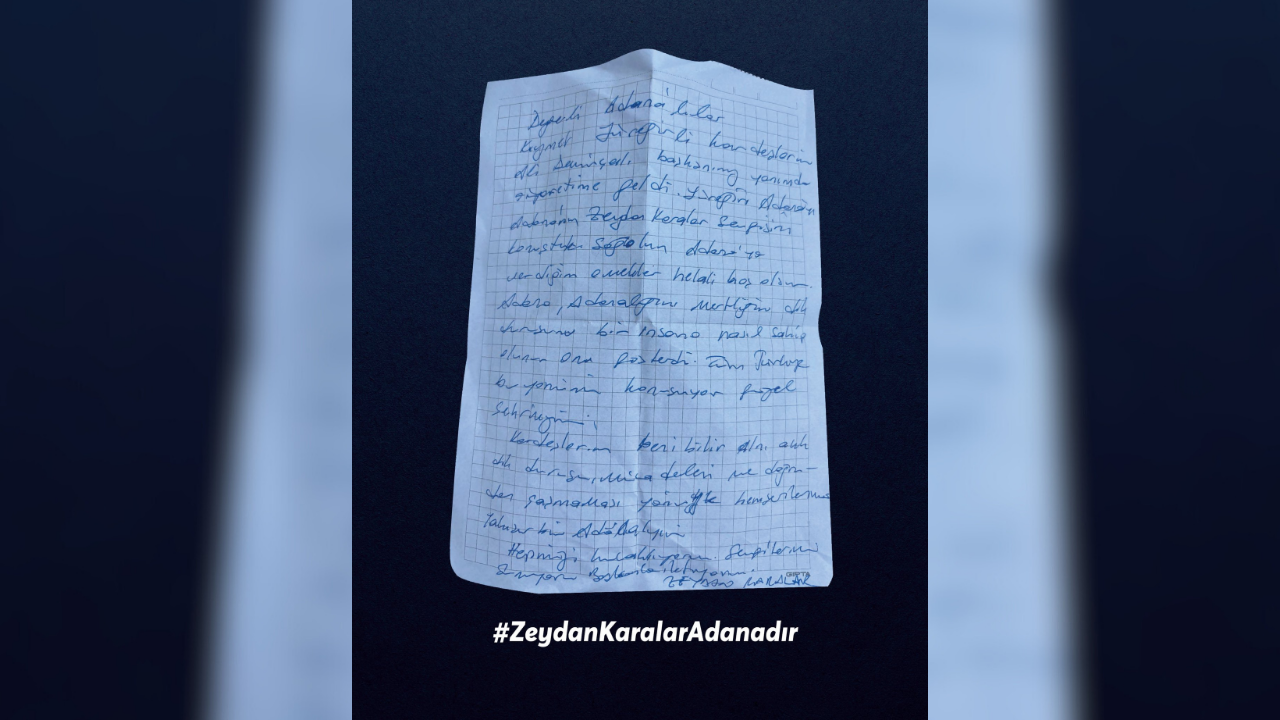 Değerli Adana'lılar
Kıymetli Yüreğirli kardeşlerim
Ali Demirçalı başkanımız yanımda
ziyaretime geldi. Yüreğirin Adananın
Adananın Zeydan Karalar Sevgisini
konuştuk Sağolun Adana'ya
verdiğim emekler helali hoş olsun.
Adana, Adanalığını Mertliğini dik
duruşunu bir insana nasıl sahip
olunur onu gösterdi. Tüm Türkiye
bu yönünü konuşuyor güzel
Şehrimizin
Kardeşlerim beni bilir Alnı açık
dik duruşu, mücadeleri ve doğru-
dan şaşmaması yönüyle hemşerilerime
yakışır bir Adanalıyım
Hepinizi kucaklıyorum. Sevgilerimi
Başkanla iletiyorum.
ZEYDAN KARALAR
#ZeydanKaralarAdanadır